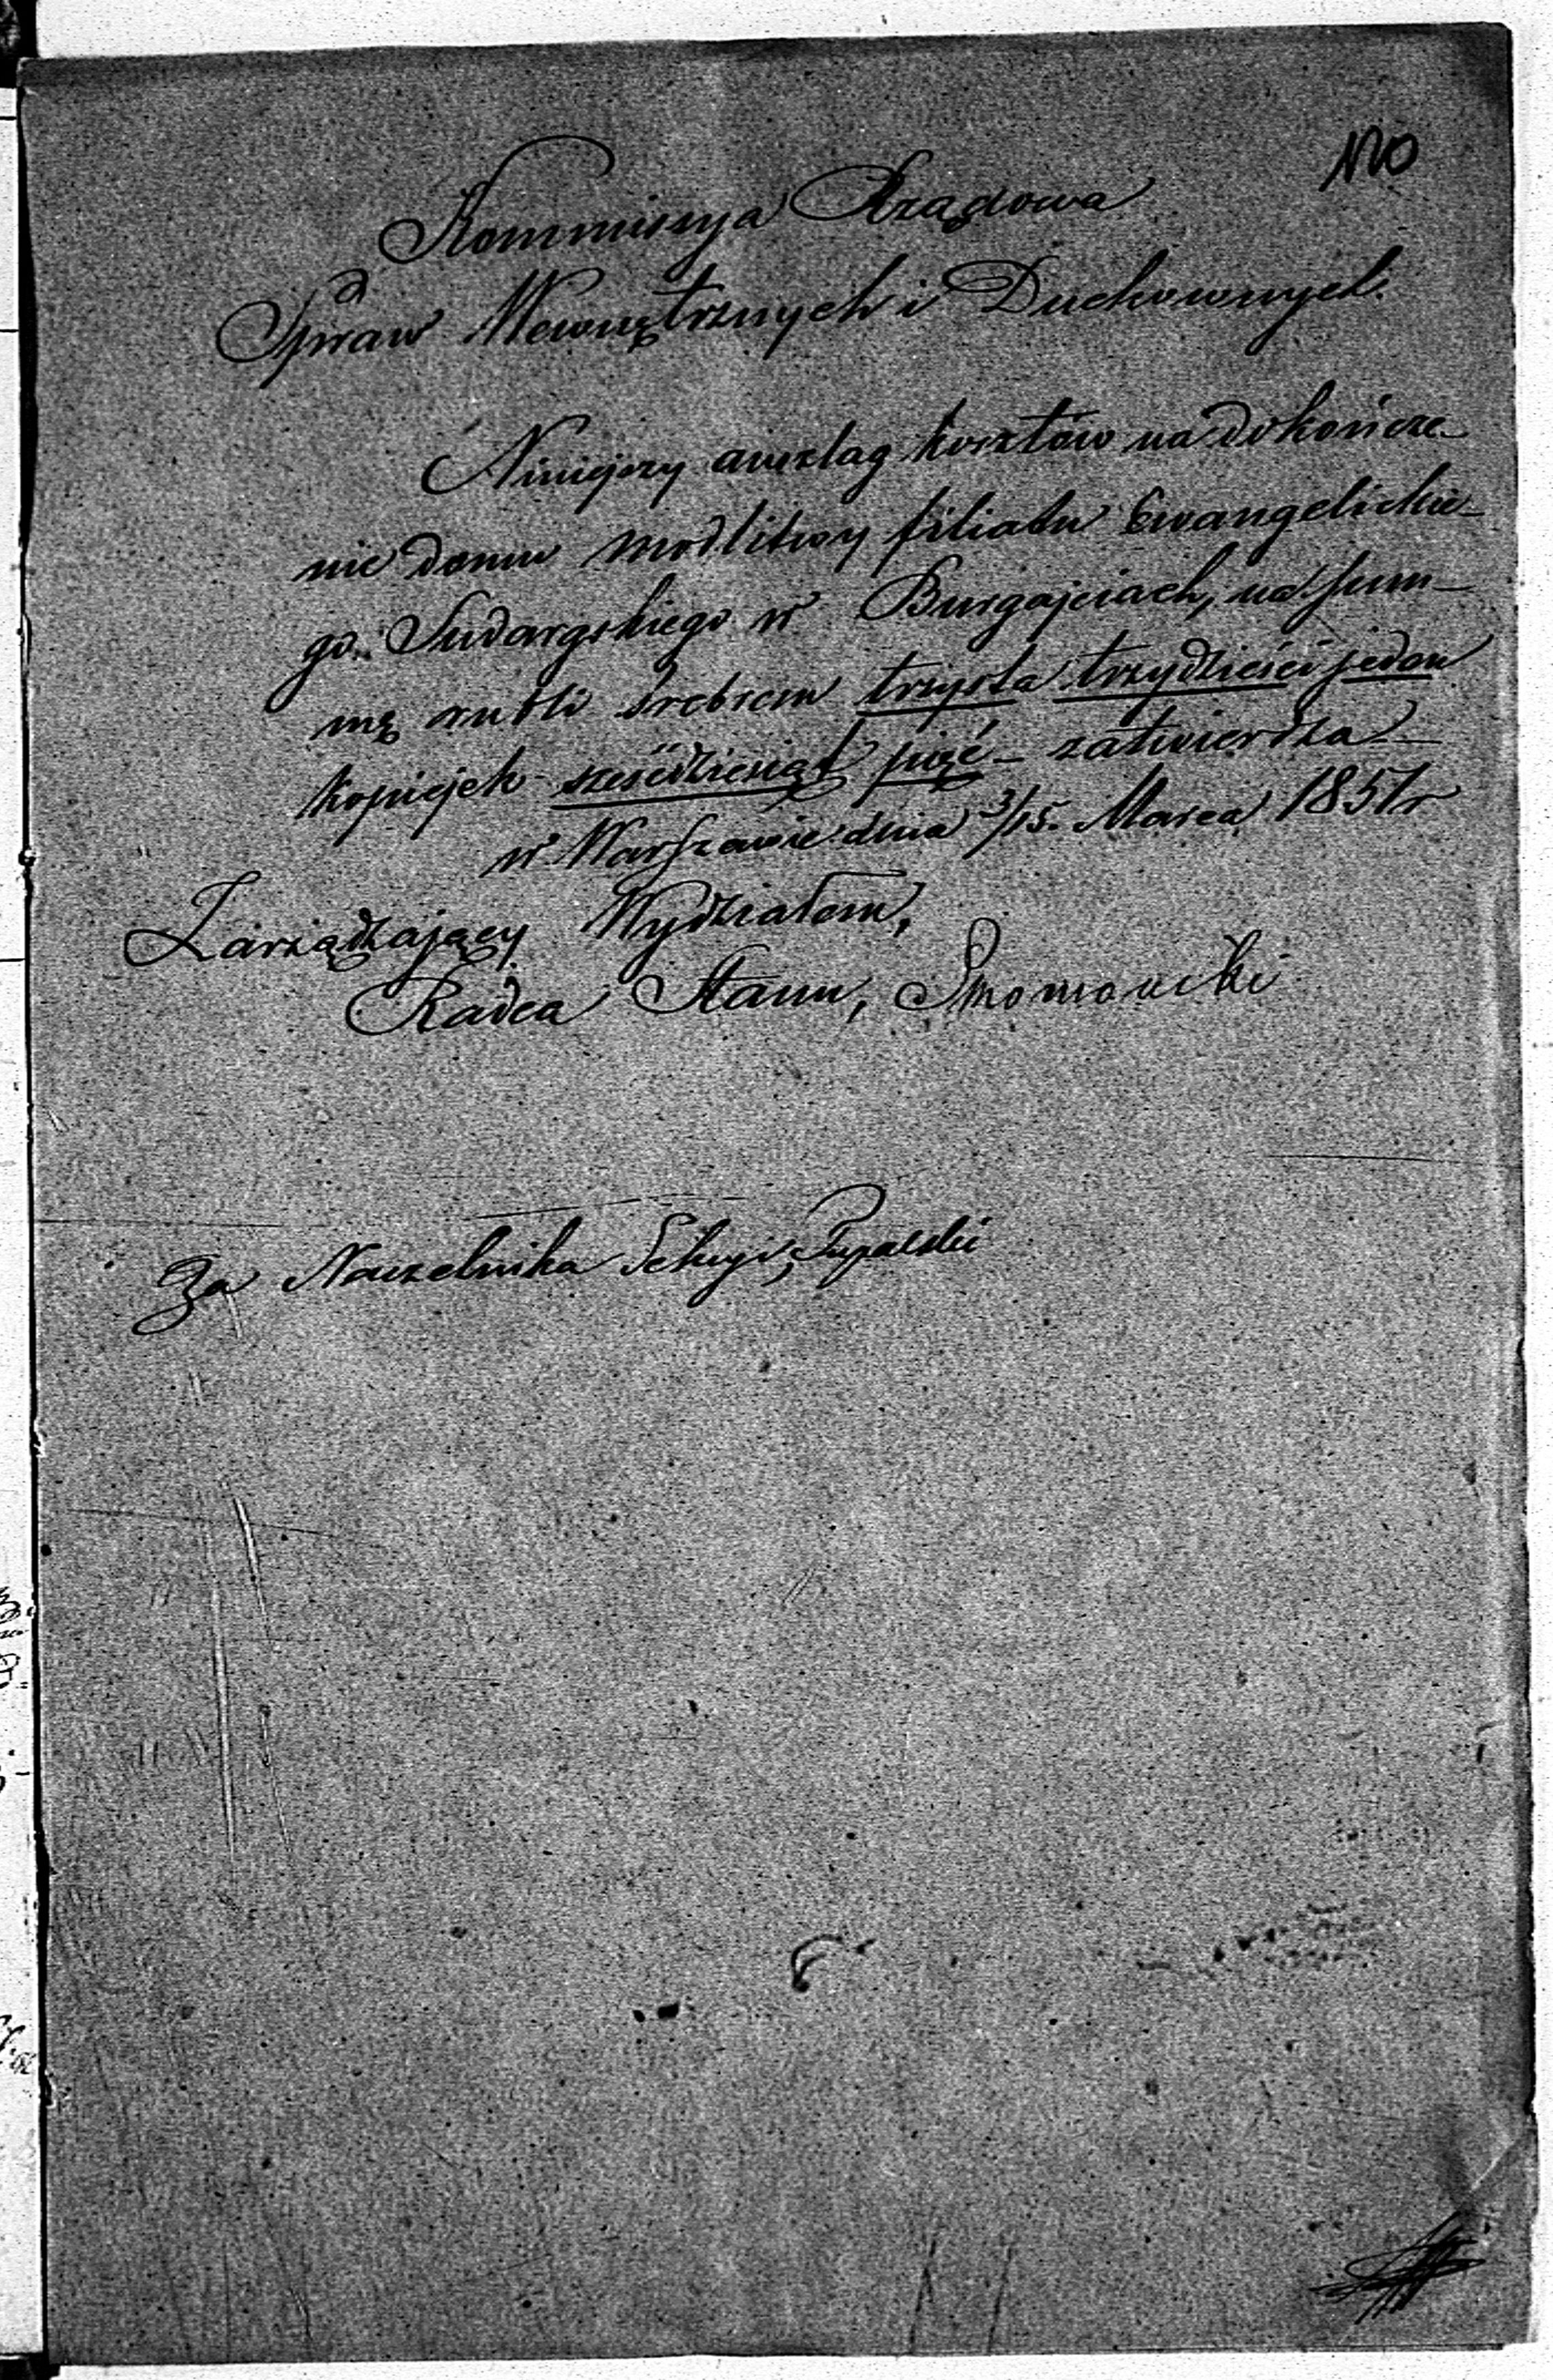 170
Kommissya Rządowa
Spraw Wewnętrznych i Duchownych.
Niniejszy anszlag kosztów na dokończe-
nie domu modlitwy filiału Ewangelickie-
go Sudargskiego w Burgajciach, na sum-
mę rubli srebrem trzysta trzydzieści jeden
kopiejek sześćdziesiąt pięć – zatwierdza
w Warszawie dnia 3/15. Marca 1857 r
Zarządzający Wydziałem,
Radca Stanu,
Za Naczelnika Sekcyi,